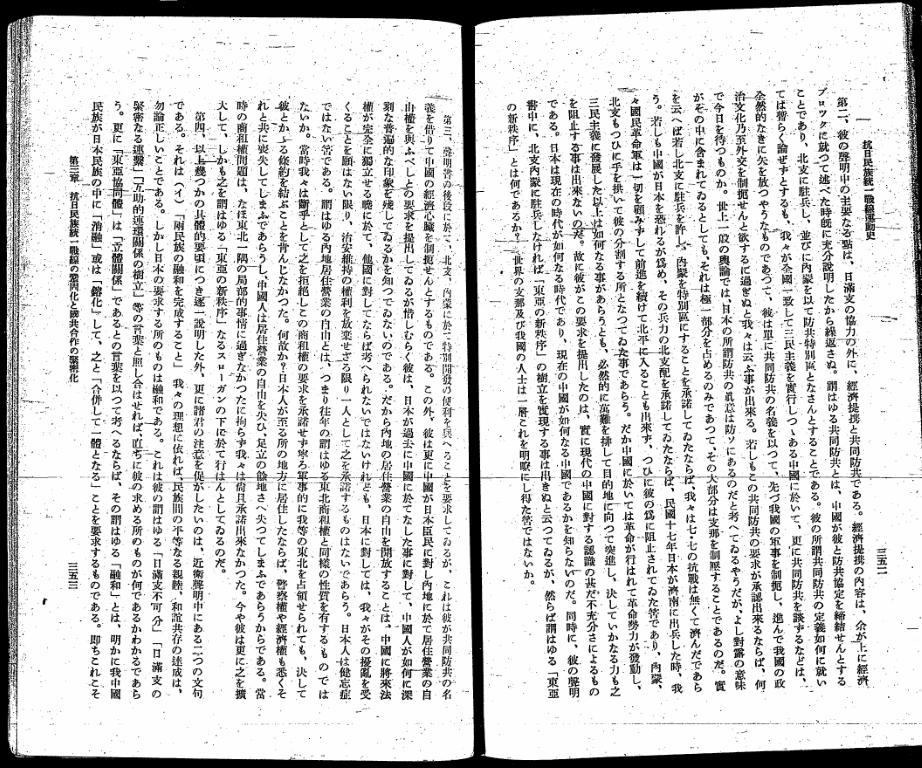 抗日民族統一戰線運動史
三五二
第二、彼の聲明中の主要なる點は、日滿支の協力の外に、經濟提携と共同防共である。經濟提携の内容は、余が上に經濟
ブロックに就つて述べた時既に充分説明したから繰返さぬ。謂はゆる共同防共とは、中國が彼と防共協定を締結せんとする
ことであり、北支に駐兵し、並びに内蒙を以て防共特別區となさんとすることである。彼の所謂共同防共の定義如何に就い
ては暫らく論ぜずとするも、我々が全國一致して三民主義を實行しつゝある中國に於いて、更に共同防共を談ずるなどは、
全然的なきに矢を放つやうなものであつて、彼は單に共同防共の名義を以つて、先づ我國の軍事を制扼し、進んで我國の政
治文化乃至外交を制扼せんと欲するに過ぎぬと我々は云ふ事が出來る。若しもこの共同防共の要求が承認出來るならば、何
で今日を待つものか。世上一般の輿論では、日本の所謂防共の眞意は防ソにあるのだと考へてゐるやうだが、よし對露の意味
がその中に含まれてゐるとしても、それは極一部分を占めるのみであつて、その大部分は支那を制壓することであるのだ。實
を云へば若し北支に駐兵を許し、内蒙を特別區にすることを承諾してゐたならば、我々は七・七の抗戰は無くて濟んだであら
う。若しも中國が日本を恐れるが爲め、その兵力の北支配を承諾してゐたたならば、民國十七年日本が濟南に出兵した時、我
々國民革命軍は一切を顧みずして前進を續けて北平に入ることも出來ず、つひに彼の爲に阻止されてゐた筈であり、内蒙、
北支もつひに手を拱いて彼の分割する所となつてゐた事であらう。だか中國に於いては革命が行はれて革命勢力が發動し、
三民主義に發展した以上は如何なる事があらうとも、必然的に萬難を排して目的地に向つて突進し、決していかなる力も之
を阻止する事は出來ないのだ。故に彼がこの要求を提出したのは、實に現代の中國に對する認識の甚だ不充分さによるもの
である。日本は現在の時代が如何なる時代であり、現在の中國が如何なる中國であるかを知らないのだ。同時に、彼の聲明
書中に、北支内蒙に駐兵しなければ「東亞の新秩序」の樹立を實現する事は出きぬと云つてゐるが、然らば謂はゆる「東亞
の新秩序」とは何であるか？世界の支那及び我國の人士は一層これを明瞭にし得た筈ではないか。
第三、聲明書の後段に於て、北支、内蒙に於て特別開發の便利を與へることを要求してゐるが、これは彼が共同防共の名
義を借りて中國の經濟心臟を制扼せんとするものである。この外、彼は更に中國が日本臣民に對し内地に於て居住營業の自
由權を與ふべしとの要求を提出してゐるが惜しむらく彼は、日本が過去に中國に於てなした事に對して、中國人が如何に深
刻な普遍的な印象を殘してゐるかを知つてゐないのである。だから内地の居住營業の自由を開放することは、中國に將來法
權が完全に獨立せる曉に於て、他國に對してならば考へられないではないけれども、日本に對しては、我々がその擾亂を受
くることを願はない限り、治安維持の權利を放棄せざる限り一人として之を承諾するものはないであらう。日本人は健忘症
ではない筈である。謂はゆる内地居住營業の自由とは、つまり往年の謂はゆる東北商租權と同樣の性質を有するものでは
ないか。當時我々は斷乎として之を拒絶しこの商租權の要求を承諾せず寧ろ軍事的に我等の東北を占領せられても、決して
彼とかゝる條約を結ぶことを肯んじなかつた。何故か？日本人が至る所の地方に居住したならば、警察權や經濟權も悉くそ
れと共に喪失してしまふであらうし、中國人は居住營業の自由を失ひ、足立の餘地さへ失つてしまふであらうからである。當
時の商租權問題は、なほ東北一隅の局部的事情に過ぎなかつたに拘らず我々は尚且承諾出來なかつた。今や彼は更に之を擴
大して、しかも之を謂はゆる「東亞の新秩序」なるスローガンの下に於て行はんとしてゐるのだ。
第四、以上幾つかの具體的要項につき逐一説明した外、更に諸君の注意を促がしたいのは、近衛聲明中にある二つの文句
である。それは（イ）「兩民族の融和を完成すること」我々の理想に依れば、民族間の平等なる親睦、和諧共存の達成は、
勿論正しいことである。しかし日本の要求する所のものは融和である。これは彼の謂はゆる「日滿支不可分」「日滿支の
緊密なる連繋」「互助的連環關係の樹立」等の言葉と照し合はせれば、直ちに彼の求める所のものが何であるかゞわかるであら
う。更に「東亞協同體」は「立體關係」であるとの言葉を以つて考へるならば、その謂はゆる「融和」とは、明かに我中國
民族が日本民族の中に「消融」或は「鎔化」して、之と「合併して一體となる」ことを要求するものである。即ちこれこそ
第三章　抗日民族統一戰線の鞏固化と國共合作の緊密化
三五三